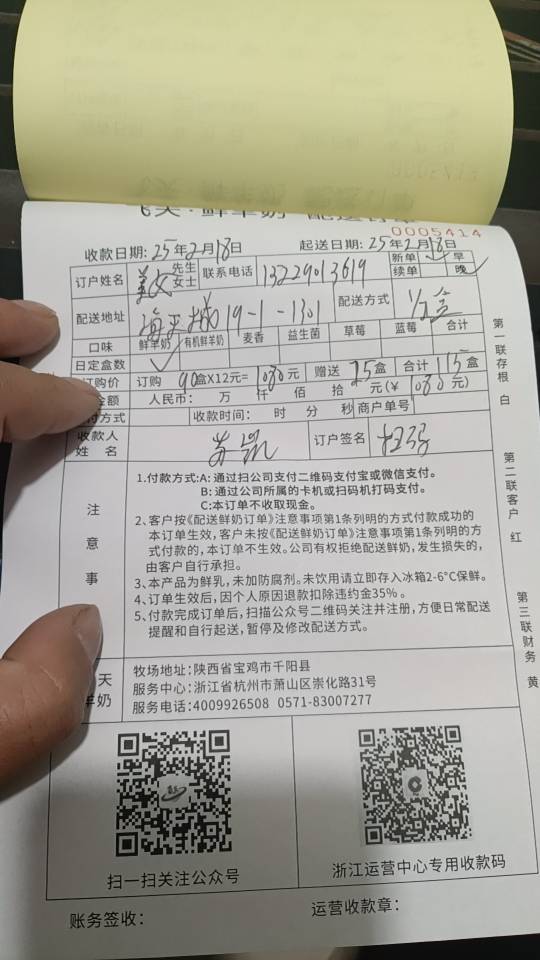 飞天·鲜羊奶 配送订单
0005414
收款日期: 25年2月18日 起送日期: 25年2月18日
订户姓名 先生 女士 联系电话 13229013619 新单 早
续单 晚
配送地址 19-1-1301 配送方式 1/2盒
口味 鲜羊奶 有机鲜羊奶 麦香 益生菌 草莓 蓝莓 合计
日定盒数
订购价 订购 90盒X12元=1080元 赠送 25盒 合计 115盒
金额 人民币: 万 仟 佰 拾 元(¥ 1080元)
付方式 收款时间: 时 分 秒 商户单号
收款人
姓 名 苏凯 订户签名
注意事
1.付款方式:A:通过扫公司支付二维码支付宝或微信支付。
B:通过公司所属的卡机或扫码机打码支付。
C:本订单不收取现金。
2、客户按《配送鲜奶订单》注意事项第1条列明的方式付款成功的
本订单生效,客户未按《配送鲜奶订单》注意事项第1条列明的方
式付款的,本订单不生效。公司有权拒绝配送鲜奶,发生损失的,
由客户自行承担。
3、本产品为鲜乳,未加防腐剂。未饮用请立即存入冰箱2-6°C保鲜。
4、订单生效后,因个人原因退款扣除违约金35%。
5、付款完成订单后,扫描公众号二维码关注并注册,方便日常配送
提醒和自行起送,暂停及修改配送方式。
天
羊奶
牧场地址:陕西省宝鸡市千阳县
服务中心:浙江省杭州市萧山区崇化路31号
服务电话:4009926508 0571-83007277
扫一扫关注公众号
浙江运营中心专用收款码
账务签收:
运营收款章:
第一联存根 白
第二联客户 红
第三联财务 黄